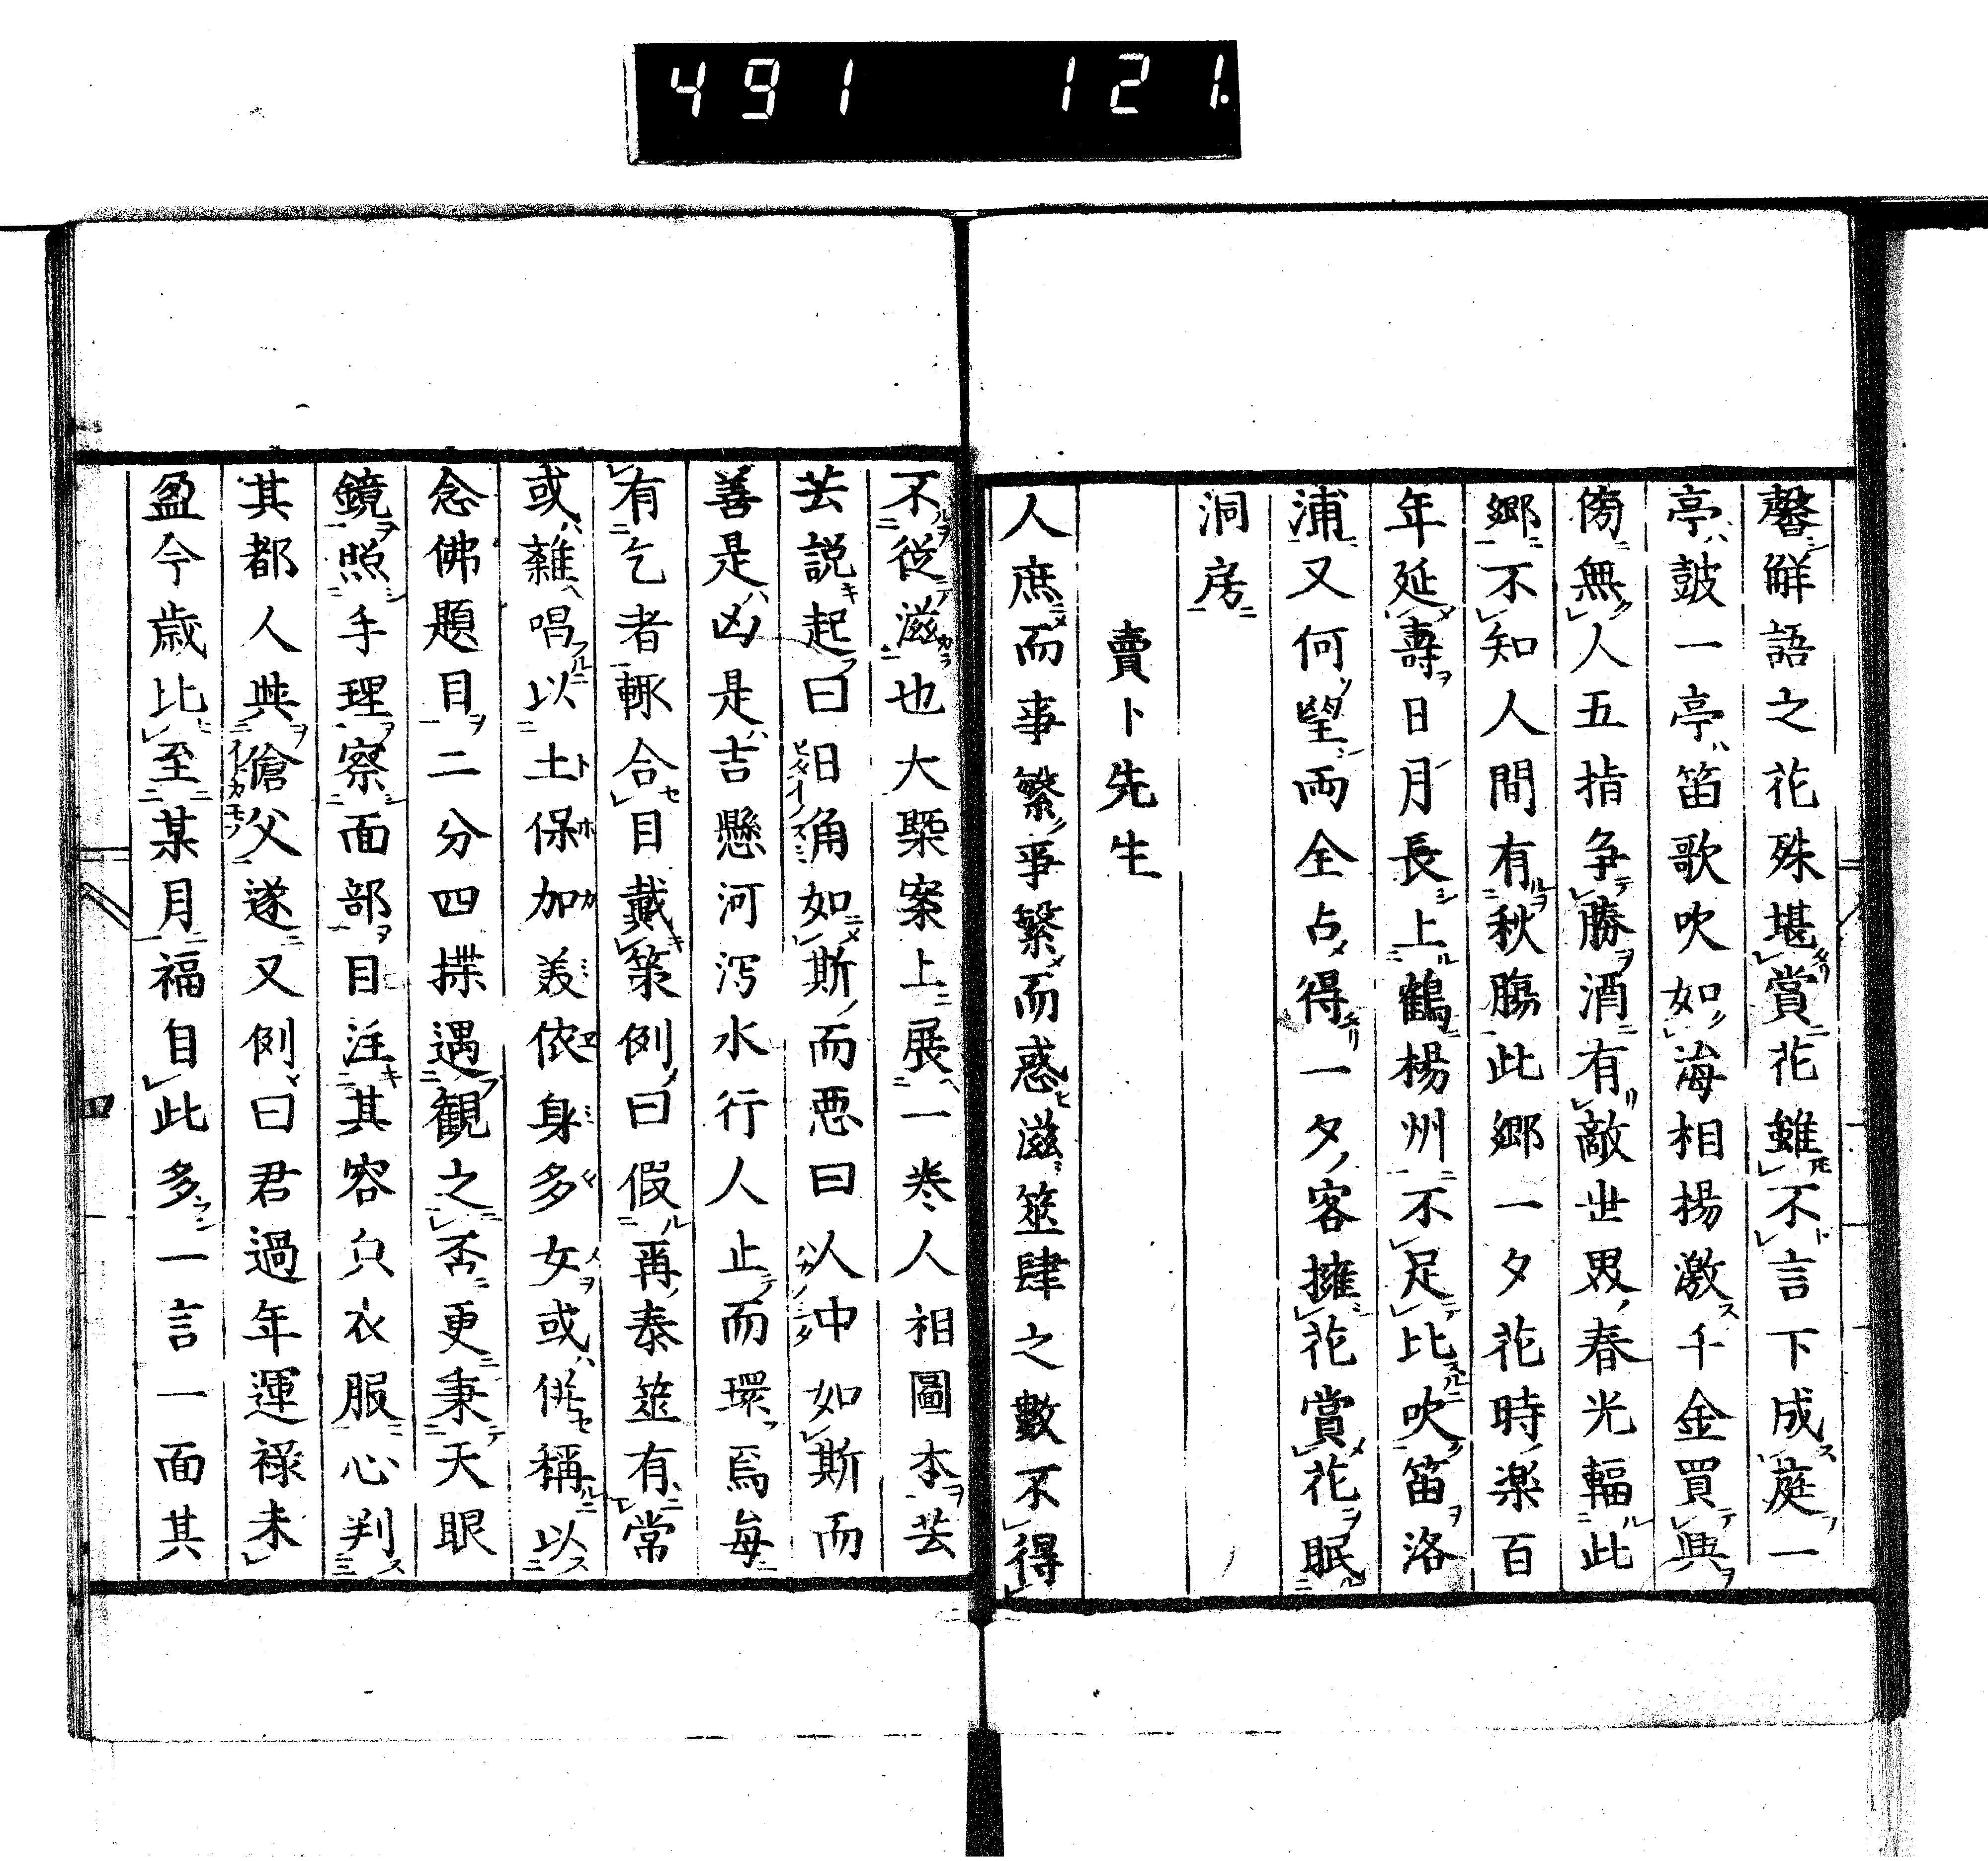 491 121.
馨解語之花殊堪賞花雖不言下成庭一
亭鼓一亭笛歌吹如海相揚激千金買興
傍無人五指争勝酒有敵世界春光輻此
郷不知人間有秋膓此郷一夕花時楽百
年延壽日月長上鶴楊州不足比吹笛洛
浦又何望両全占得一夕客擁花賞花眠
洞房
賣卜先生
人庶而事繁事繁而惑滋筮肆之數不得
不従滋也大槩案上展一巻人相圖本芸
芸説起曰日角如斯而悪曰人中如斯而
善是凶是吉懸河瀉水行人止而環焉毎
有乞者輙合目戴策例曰假再泰筮有常
或雜唱以土保加美依身多女或併稱以
念佛題目二分四揲遇觀之否更秉天眼
鏡照手理察面部目注其容貟衣服心判
其都人與傖父遂又例曰君過年運祿未
盈今歳比至某月福自此多一言一面其
四